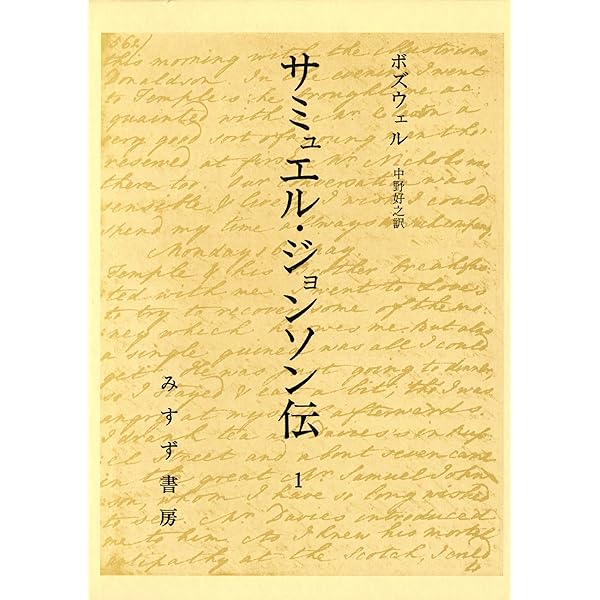 ボズウェル
中野好之訳
サミュエル・ジョンソン伝
1
みすず書房
562)
this morning with the illustrious
Donaldson. In the evening I went
to Temple's; he brought me ac-
quainted with a Mr.
very good sort of a young man tho'
reserved at first. Mr
there too. Our conversation was
sensible & lively. I wish I could
spend my time always in such company.
Monday
Temple & his brother breakfas-
ted with me. I went to Love's
to try to recover some of the mo-
ney which he owes me. But alas
a single guinea was all I could
get. He was just going to dinner,
so I stayed & eat a bit, tho' I was
angry at myself afterwards.
I drank tea at Davies's in Rus-
sel Street and about seven came
in the great Mr. Samuel John-
son, whom I have so long wished
to see. Mr. Davies introduced
me to him. As I knew his mortal
antipathy at the Scotch, I